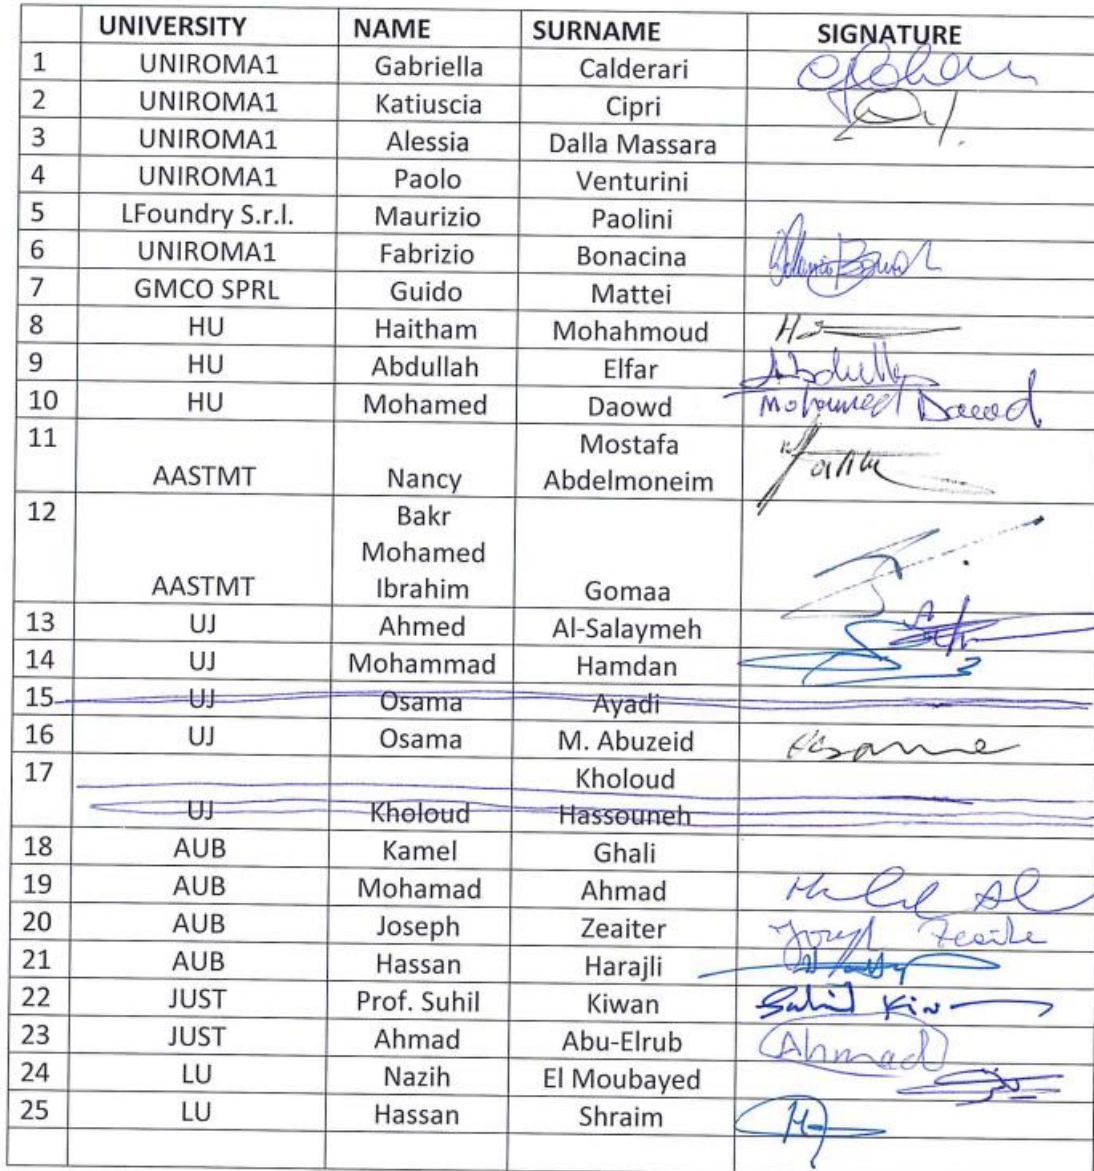 UNIVERSITY NAME SURNAME SIGNATURE
1 UNIROMA1 Gabriella Calderari
2 UNIROMA1 Katiuscia Cipri
3 UNIROMA1 Alessia Dalla Massara
4 UNIROMA1 Paolo Venturini
5 LFoundry S.r.l. Maurizio Paolini
6 UNIROMA1 Fabrizio Bonacina
7 GMCO SPRL Guido Mattei
8 HU Haitham Mohahmoud
9 HU Abdullah Elfar
10 HU Mohamed Daowd Mohamed Daowd
11 Mostafa
AASTMT Nancy Abdelmoneim
12 Bakr
Mohamed
AASTMT Ibrahim Gomaa
13 UJ Ahmed Al-Salaymeh
14 UJ Mohammad Hamdan
15 UJ Osama Ayadi
16 UJ Osama M. Abuzeid
17 Kholoud
UJ Kholoud Hassouneh
18 AUB Kamel Ghali
19 AUB Mohamad Ahmad
20 AUB Joseph Zeaiter Joseph Zeaiter
21 AUB Hassan Harajli
22 JUST Prof. Suhil Kiwan
23 JUST Ahmad Abu-Elrub Ahmad
24 LU Nazih El Moubayed
25 LU Hassan Shraim